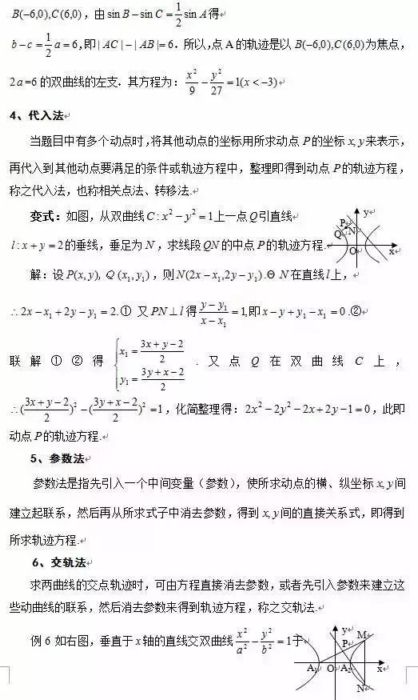 B(-6,0),C(6,0)，由 sin B - sin C = 1/2 sin A 得
b - c = 1/2 a = 6,即 | AC | - | AB |= 6. 所以,点 A 的轨迹是以 B(-6,0),C(6,0) 为焦点,
2a = 6 的双曲线的左支. 其方程为: x²/9 - y²/27 = 1(x < -3)
4、代入法
当题目中有多个动点时,将其他动点的坐标用所求动点 P 的坐标 x, y 来表示,
再代入到其他动点要满足的条件或轨迹方程中，整理即得到动点 P 的轨迹方程，
称之代入法，也称相关点法、转移法.
变式: 如图，从双曲线 C : x² - y² = 1 上一点 Q 引直线
l : x + y = 2 的垂线，垂足为 N，求线段 QN 的中点 P 的轨迹方程.
y
P
Q
N
O
x
解: 设 P(x, y), Q (x₁, y₁)，则 N(2x - x₁,2y - y₁).Θ N 在直线 l 上，
∴ 2x - x₁ + 2y - y₁ = 2.① 又 PN ⊥ l 得 (y - y₁)/(x - x₁) = 1,即 x - y + y₁ - x₁ = 0.②
联 解 ① ② 得 { x₁ = (3x + y - 2)/2 , y₁ = (3y + x - 2)/2 . 又 点 Q 在 双 曲 线 C 上，
∴ ((3x + y - 2)/2)² - ((3y + x - 2)/2)² = 1，化简整理得: 2x² - 2y² - 2x + 2y - 1 = 0，此即
动点 P 的轨迹方程.
5、参数法
参数法是指先引入一个中间变量（参数），使所求动点的横、纵坐标 x, y 间
建立起联系，然后再从所求式子中消去参数，得到 x, y 间的直接关系式，即得到
所求轨迹方程.
6、交轨法
求两曲线的交点轨迹时，可由方程直接消去参数，或者先引入参数来建立这
些动曲线的联系，然后消去参数来得到轨迹方程，称之交轨法.
例 6 如右图，垂直于 x 轴的直线交双曲线 x²/a² - y²/b² = 1 于
y
M
P
A₁
O
A₂
x
N